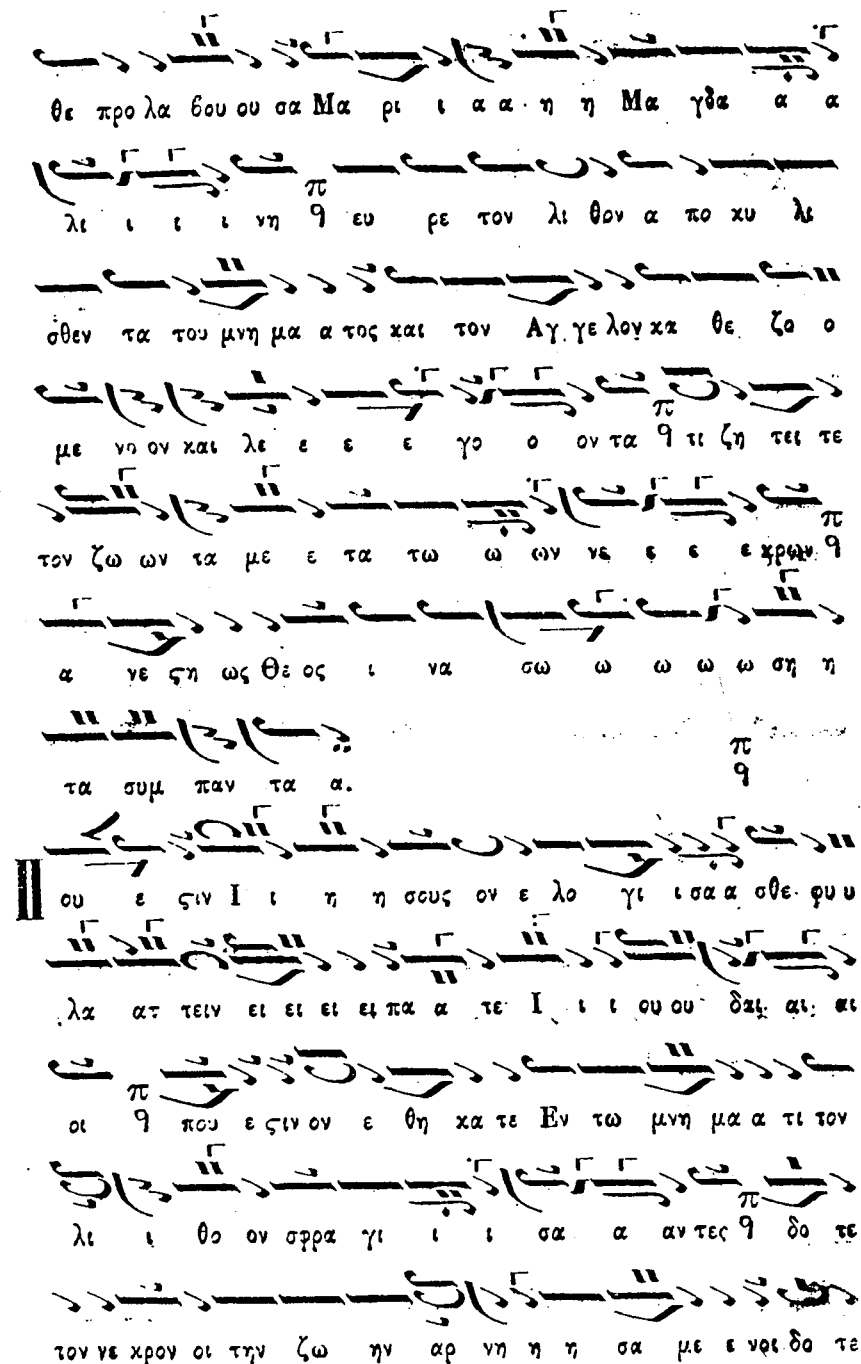 θε προ λα βου ου σα Μα ρι ι α α η η Μα γδα α α
λι ι ι ι νη π q ευ ρε τον λι θον α πο κυ λι
σθεν τα του μνη μα α τος και τον Αγ γε λον κα θε ζο ο
με νο ον και λε ε ε ε γο ο ον τα π q τι ζη τει τε
τον ζω ων τα με ε τα τω ω ων νε ε ε ε κρων π q
α νε ϛη ως Θε ος ι να σω ω ω ω ω ση η
τα συμ παν τα α. π q
Π ου ε ϛιν Ι ι η η σους ον ε λο γι ι σα α σθε φυ υ
λα ατ τειν ει ει ει ει πα α τε Ι ι ι ου ου δαι αι αι
οι π q που ε ϛιν ον ε θη κα τε Εν τω μνη μα α τι τον
λι ι θο ον σφρα γι ι ι σα α αν τες π q δο τε
τον νε κρον οι την ζω ην αρ νη η η σα με ε νοι δο τε